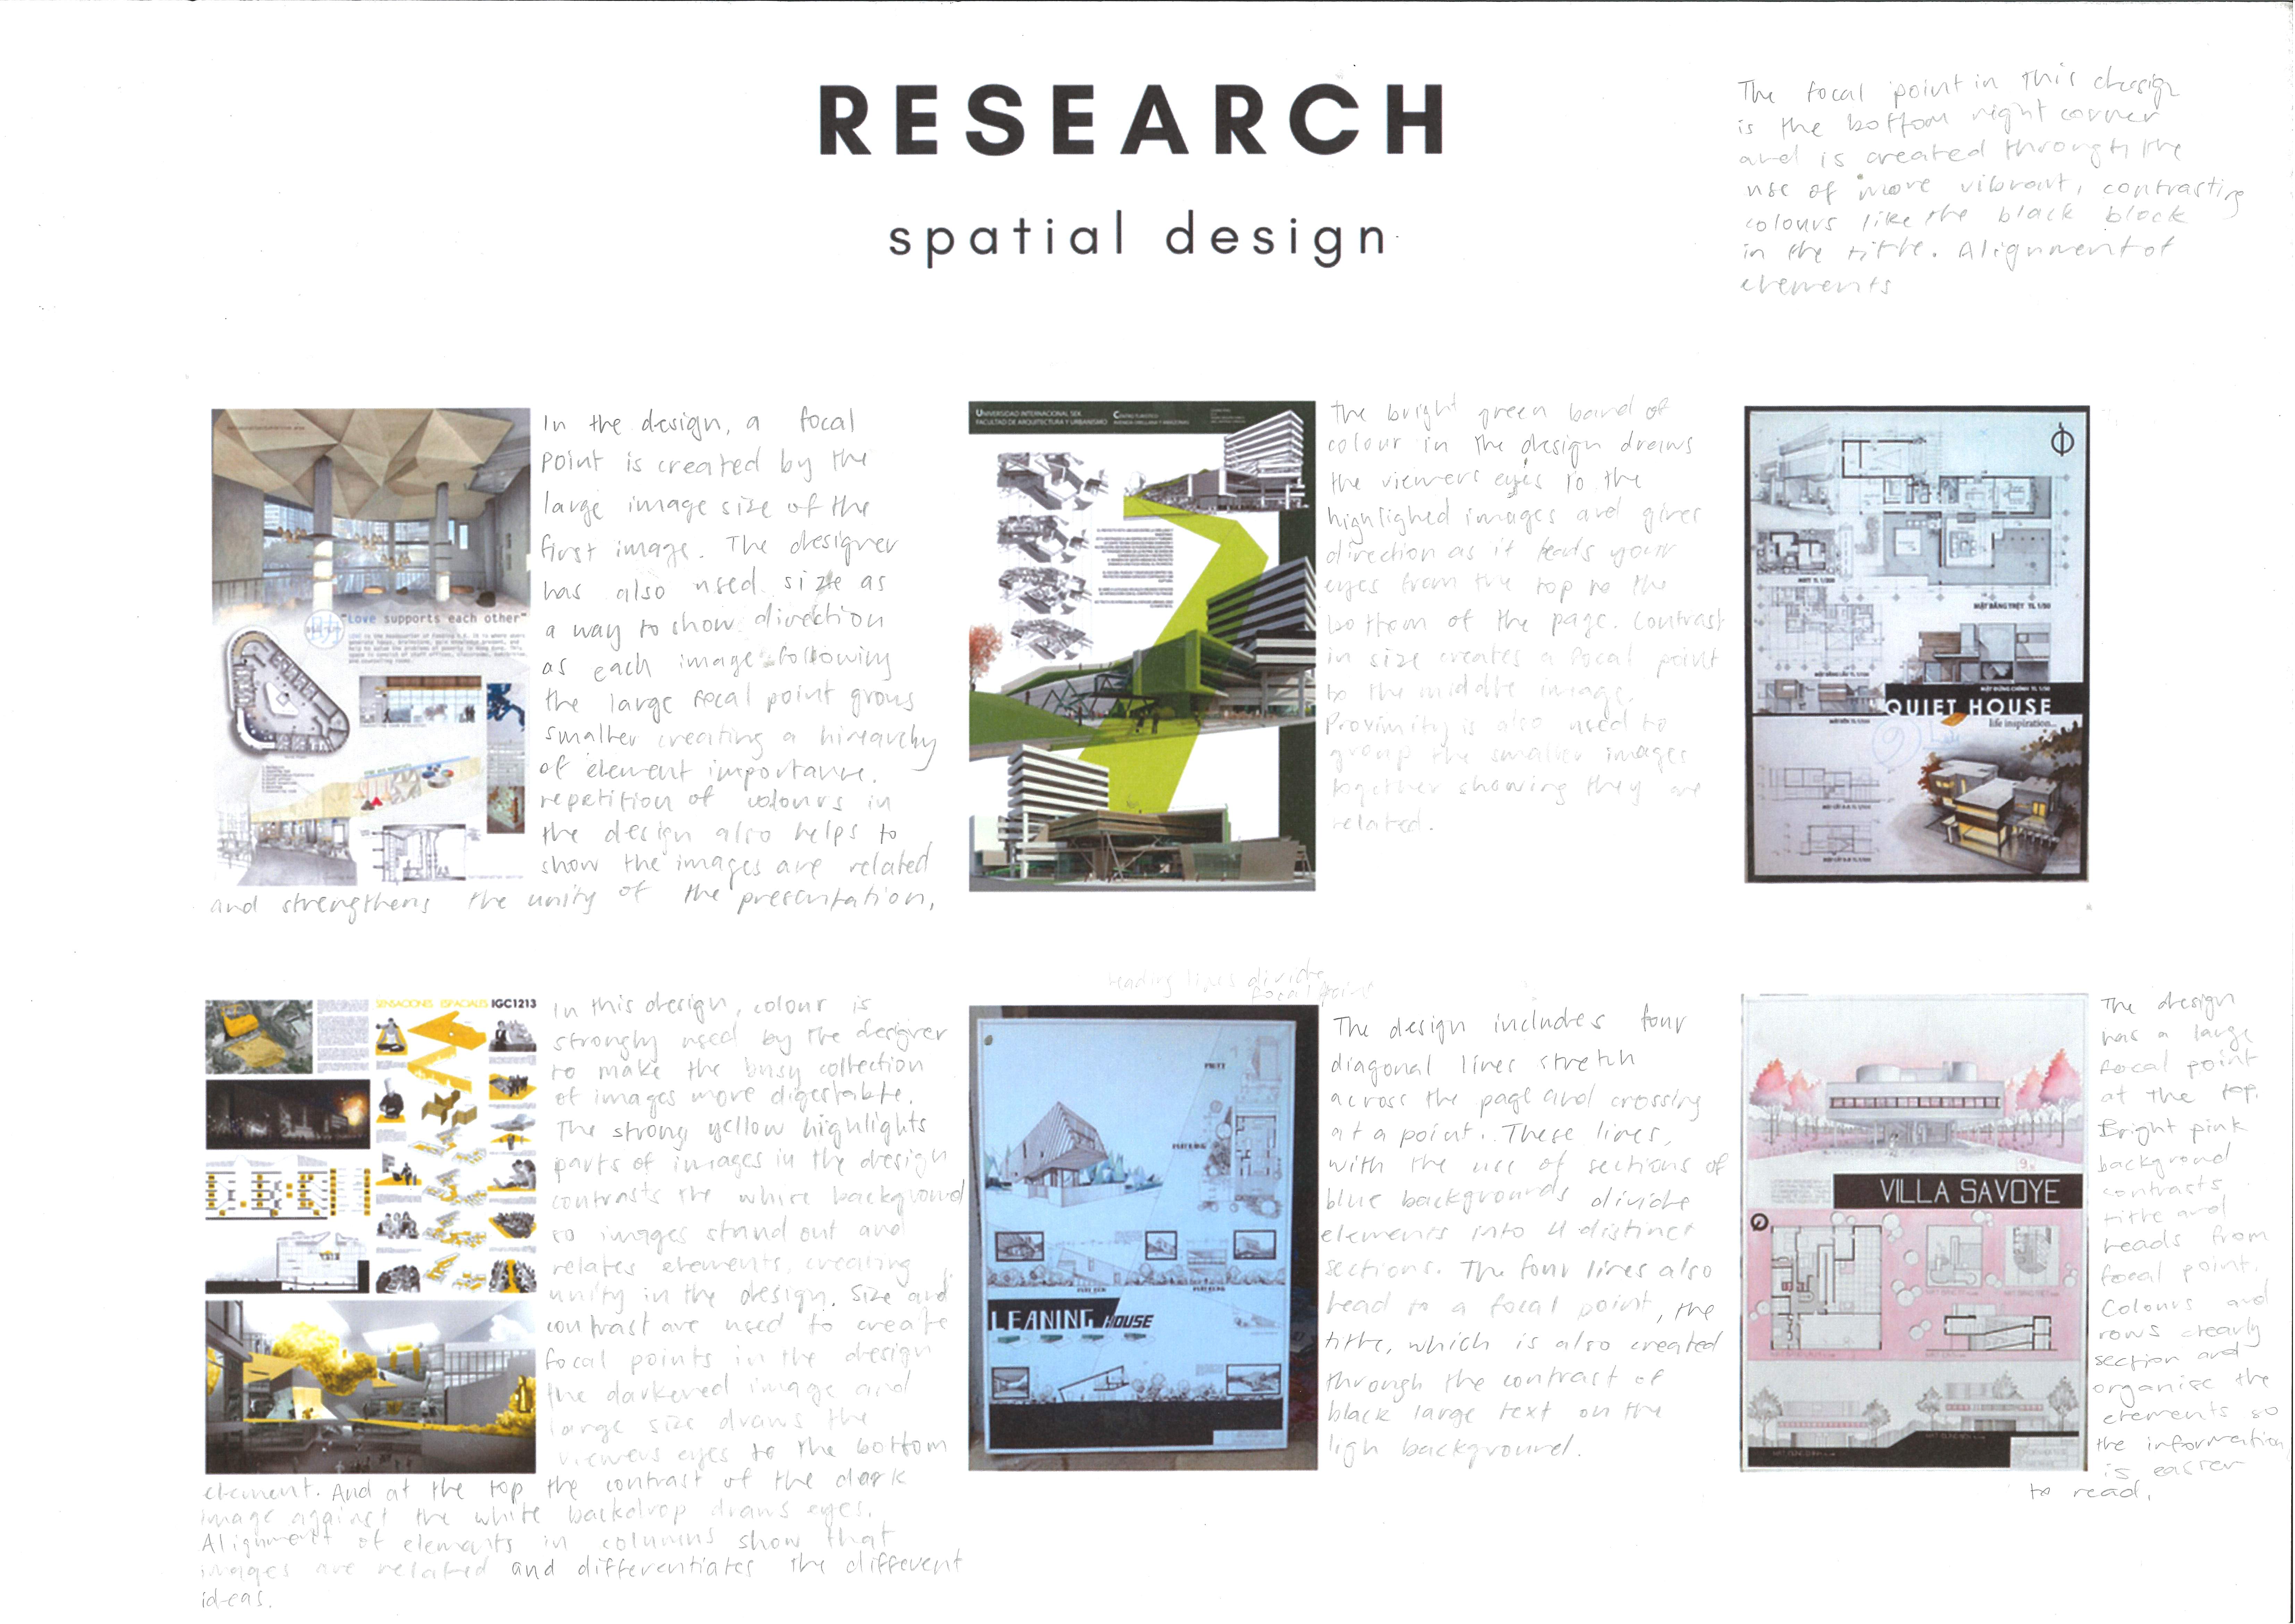 RESEARCH
spatial design
The focal point in this design
is the bottom right corner
and is created through the
use of more vibrant, contrasting
colours like the black block
in the title. Alignment of
elements
In the design, a focal
point is created by the
large image size of the
first image. The designer
has also used size as
a way to show direction
as each image following
the large focal point grows
smaller creating a hirearchy
of element importance.
repetition of colours in
the design also helps to
show the images are related
and strengthens the unity of the presentation,
"Love supports each other"
UNIVERSIDAD INTERNACIONAL SEK
FACULTAD DE ARQUITECTURA Y URBANISMO
CENTRO TURISTICO
the bright green band of
colour in the design draws
the viewers eyes to the
highlighed images and gives
direction as it leads your
eyes from the top to the
bottom of the page. Contrast
in size creates a focal point
to the middle image.
Proximity is also used to
group the smaller images
together showing they are
related.
MẶT BẰNG TRỆT TL 1/50
QUIET HOUSE
life inspiration...
SENSACIONES ESPACIALES IGC1213
In this design, colour is
strongly used by the designer
to make the busy collection
of images more digestable.
The strong yellow highlights
parts of images in the design
contrasts the white background
so images stand out and
relates elements, creating
unity in the design. Size and
contrast are used to create
focal points in the design
the darkened image and
large size draws the
viewers eyes to the bottom
element. And at the top the contrast of the dark
image against the white backdrop draws eyes.
Alignment of elements in columns show that
images are related and differentiates the different
ideas.
leading lines divide
focal point
LEANING HOUSE
The design includes four
diagonal lines stretch
across the page and crossing
at a point. These lines,
with the use of sections of
blue backgrounds divide
elements into 4 distinct
sections. The four lines also
lead to a focal point, the
title, which is also created
through the contrast of
black large text on the
ligh background.
VILLA SAVOYE
The design
has a large
focal point
at the top.
Bright pink
background
contrasts
title and
leads from
focal point.
Colours and
rows clearly
section and
organise the
elements so
the information
is easier
to read.